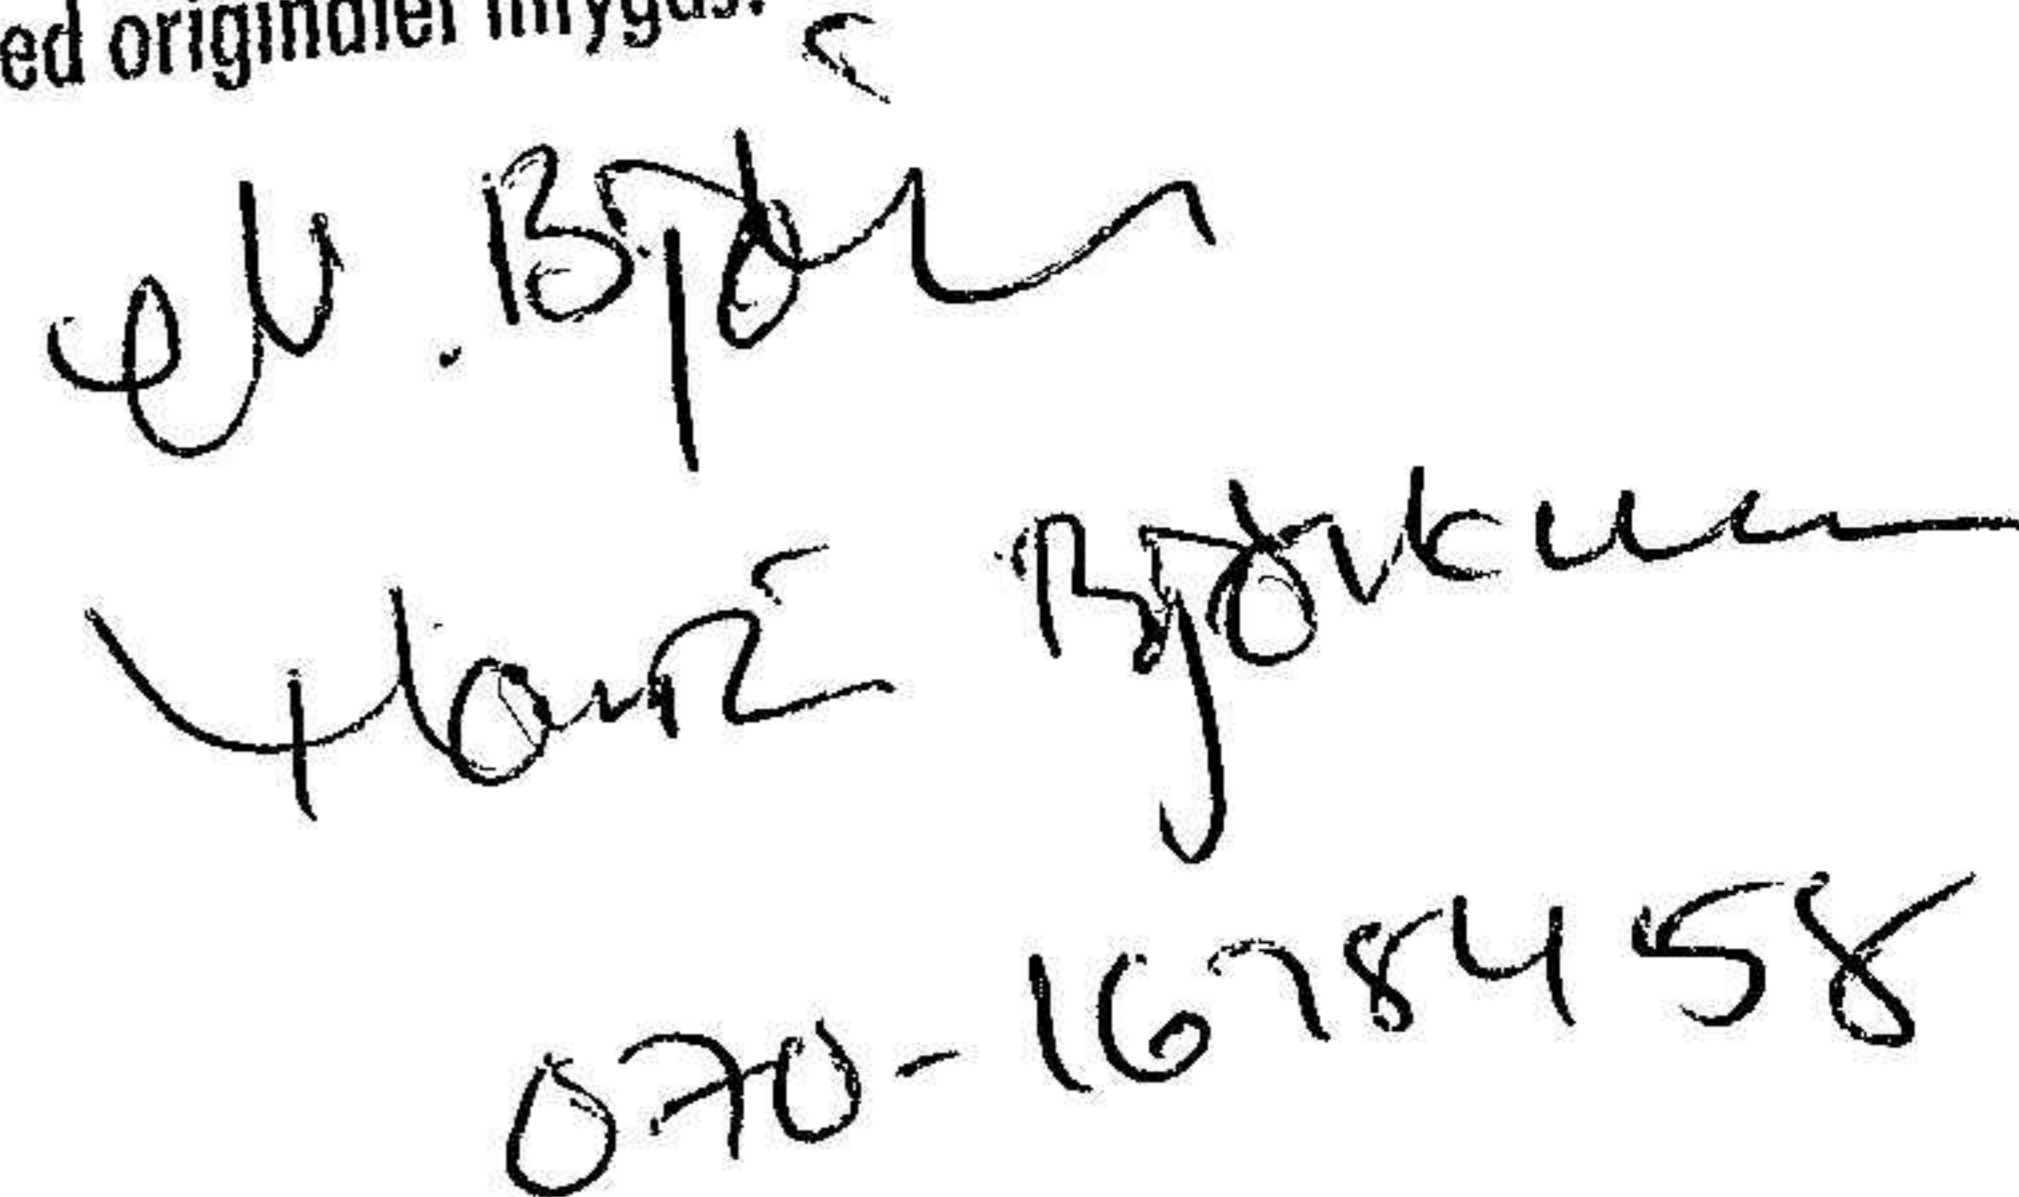 ed originalet intygas:
M. Björ
Björkman
070-1678458